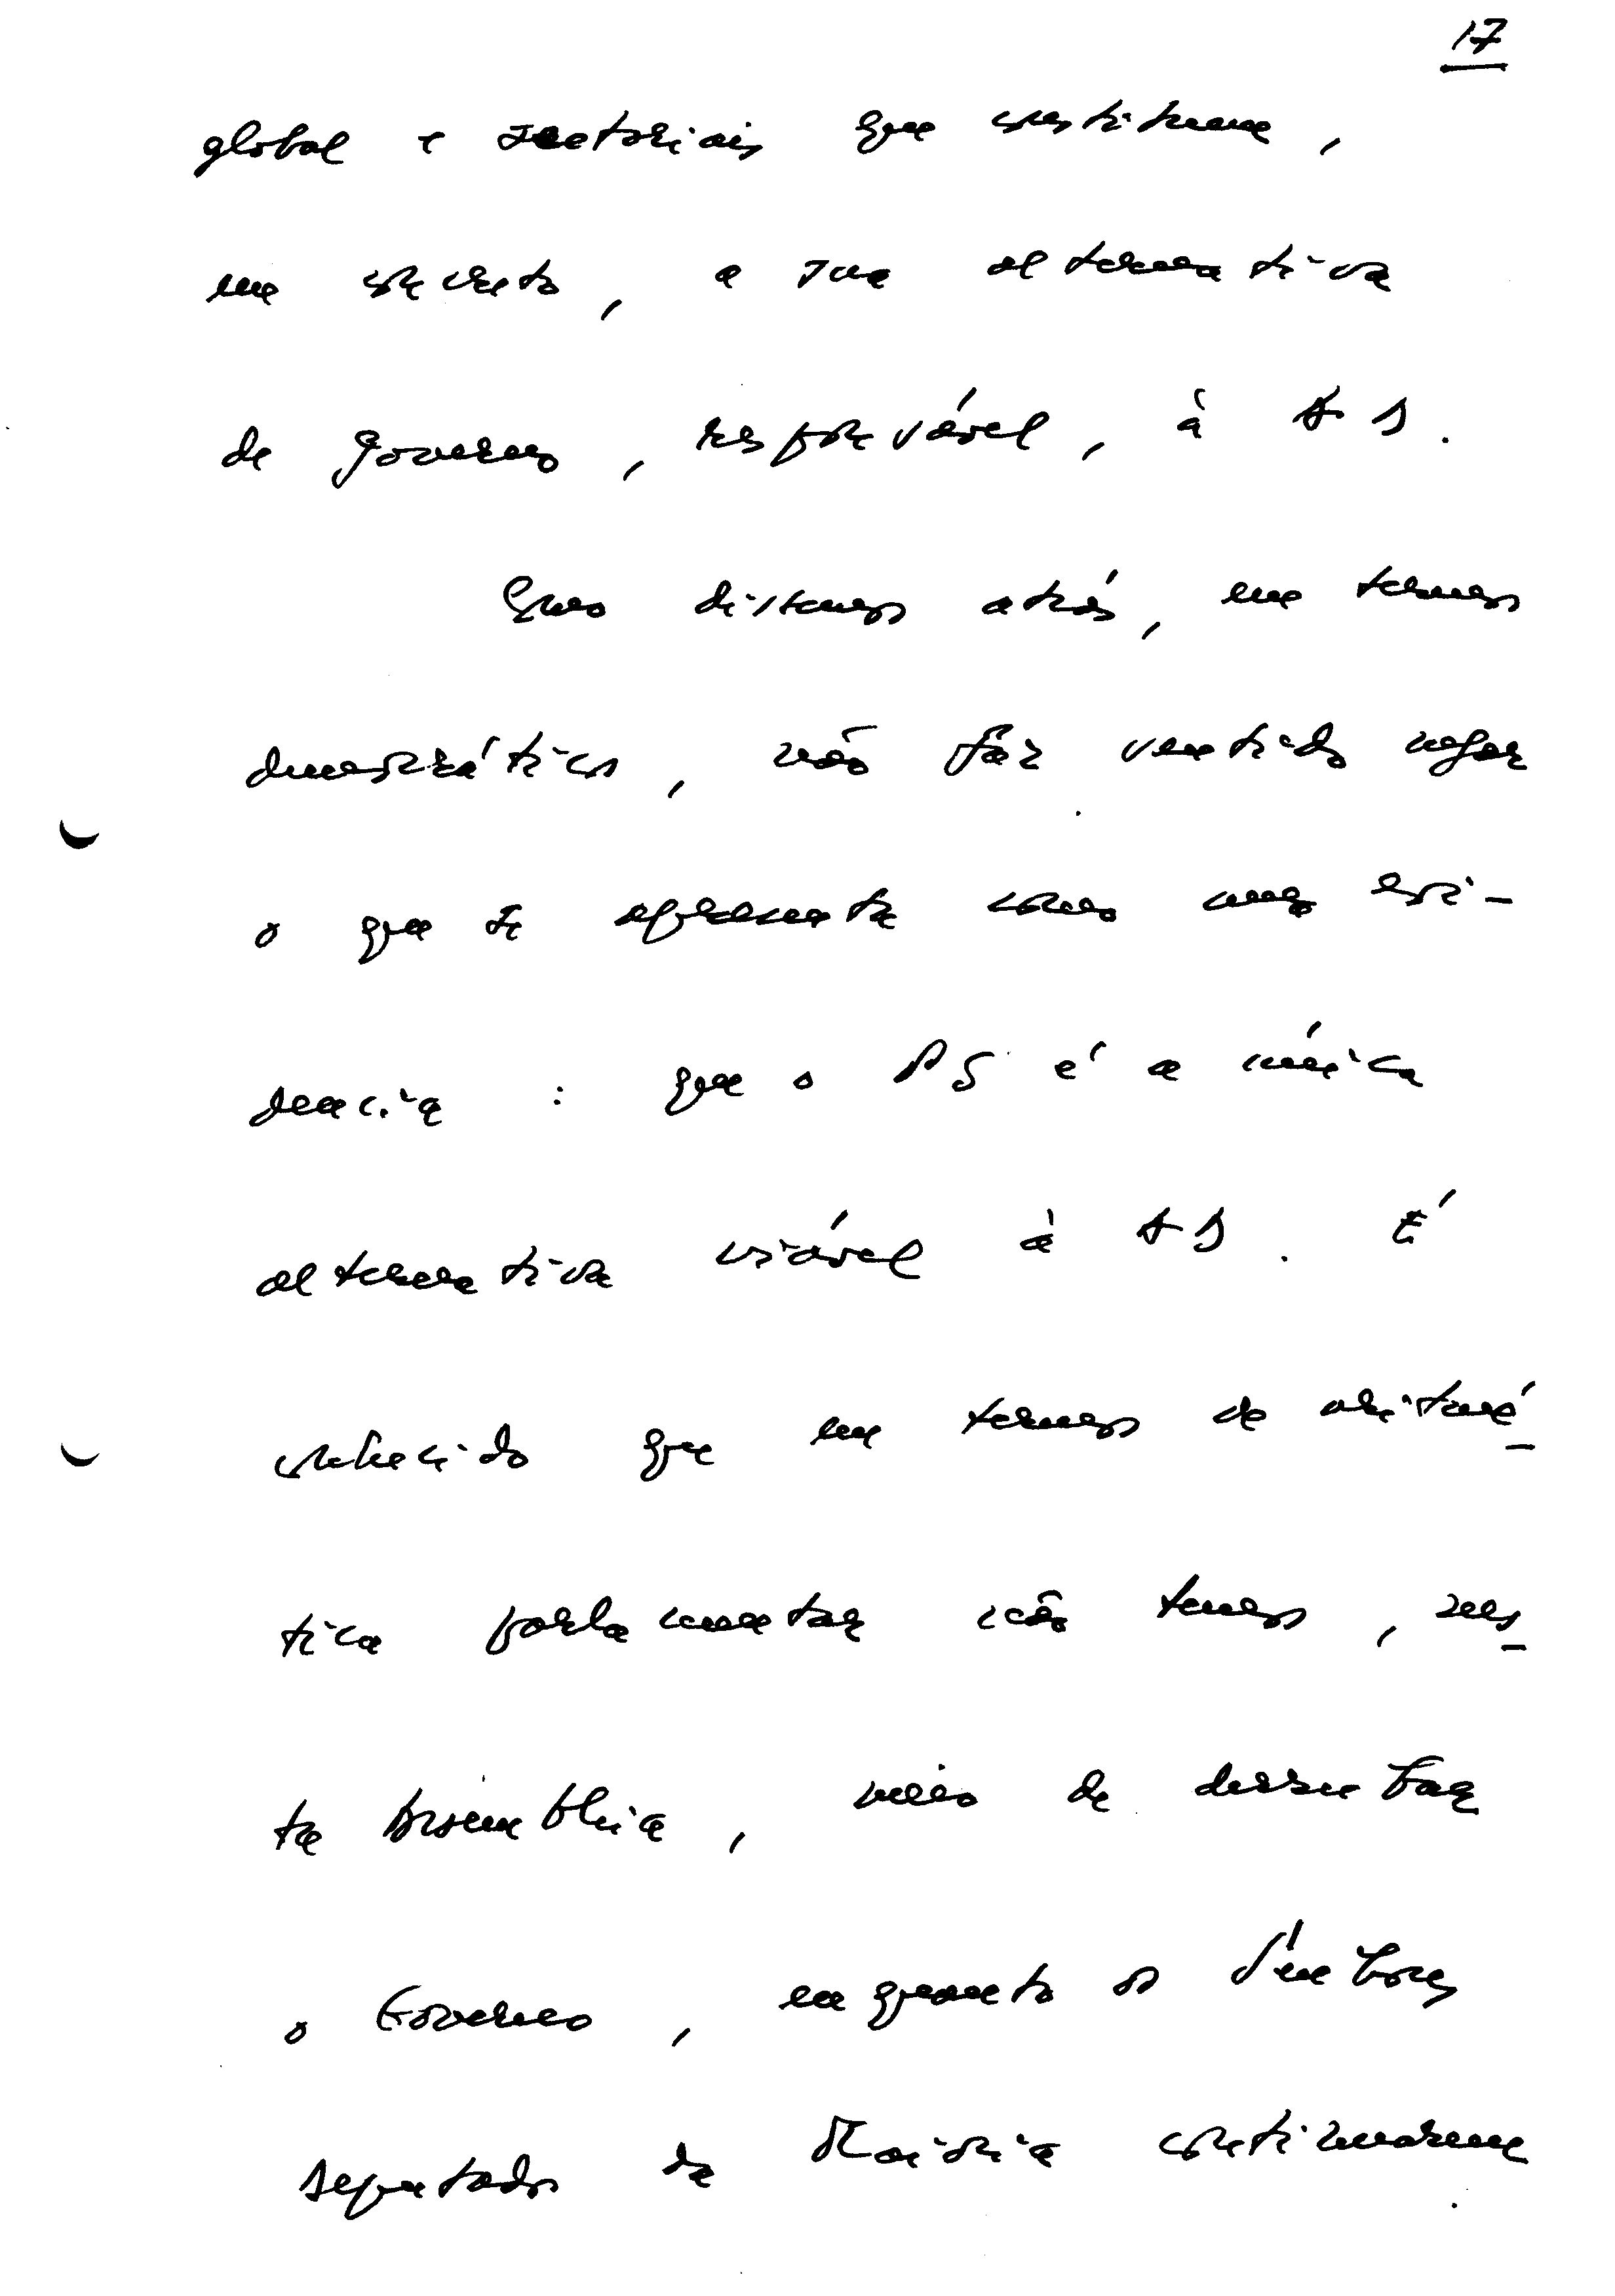 17
global e sectoriais que constituem,
em concreto, a sua alternativa
de governo, responsável, à AD.
Como dissemos atrás, em termos
democráticos, não faz sentido negar
o que se apresenta como uma evi-
dencia : que o PS é a única
alternativa viável à AD. É
conhecido que em termos de aritmé-
tica parlamentar não temos, nes-
ta Assembleia, meio de derrubar
o Governo, enquanto os Senhores
Deputados da Maioria continuarem